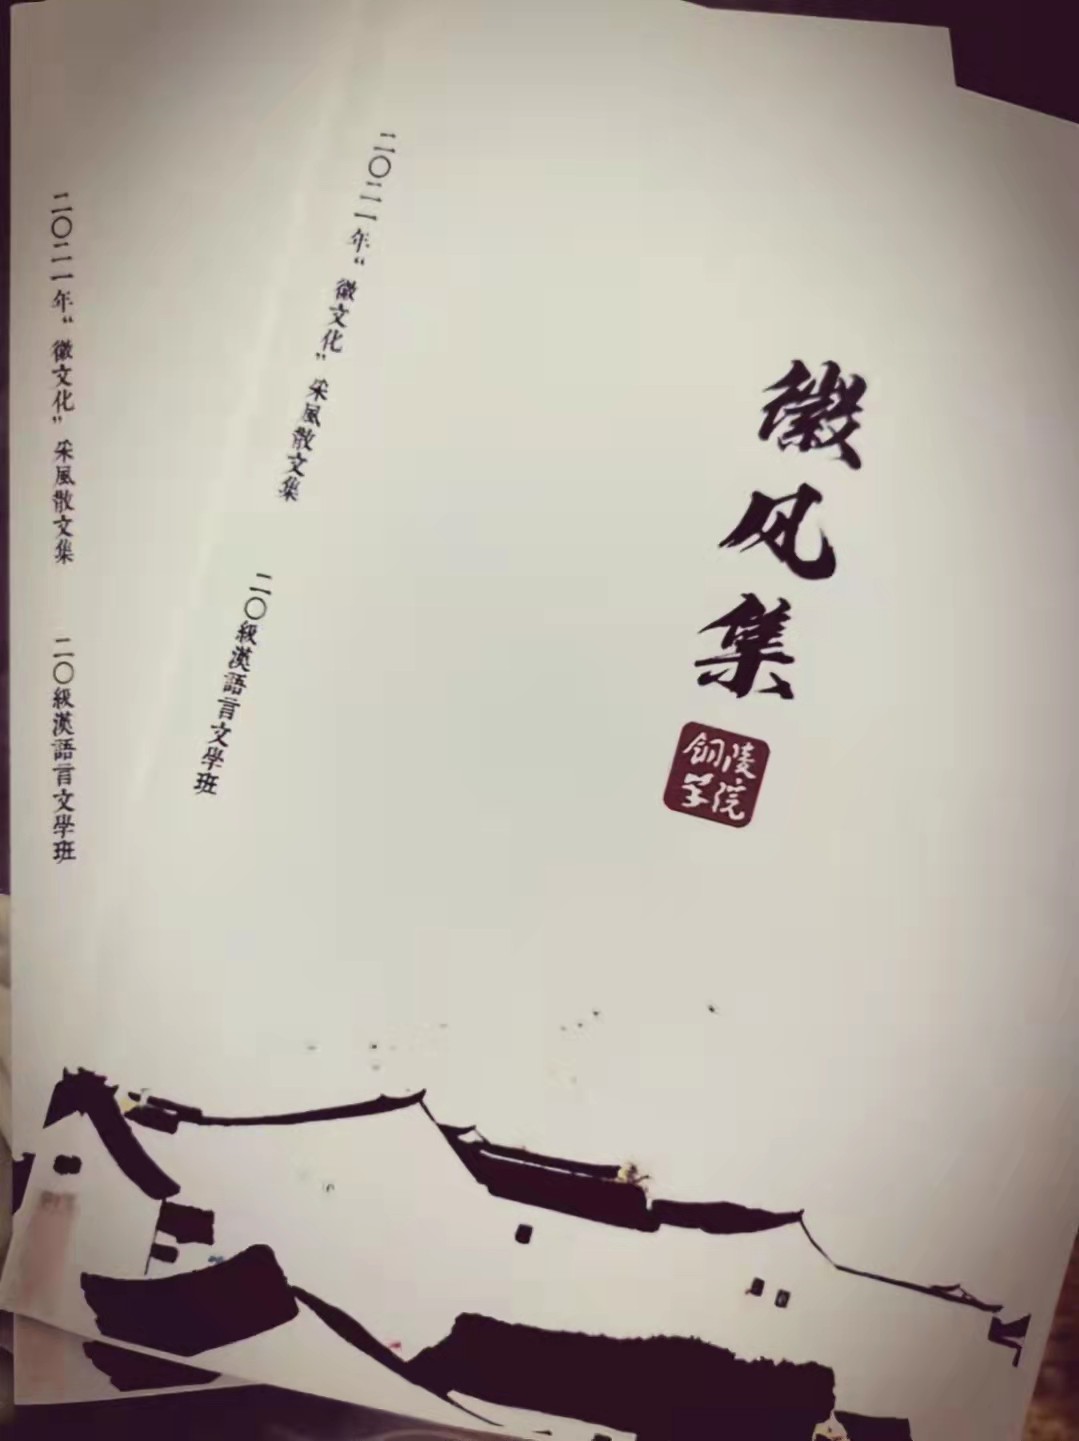 徽风集
铜陵
学院
二〇二一年“徽文化”采風散文集
二〇級漢語言文學班
二〇二一年“徽文化”采風散文集
二〇級漢語言文學班